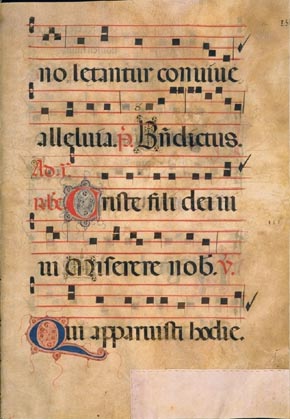 no letantur conviuie
alleluia. p̄. Bn̄dictus.
Ad .i.
rbe Criste fili dei ui
ui Miserere nob. V.
Qui apparuisti hodie.